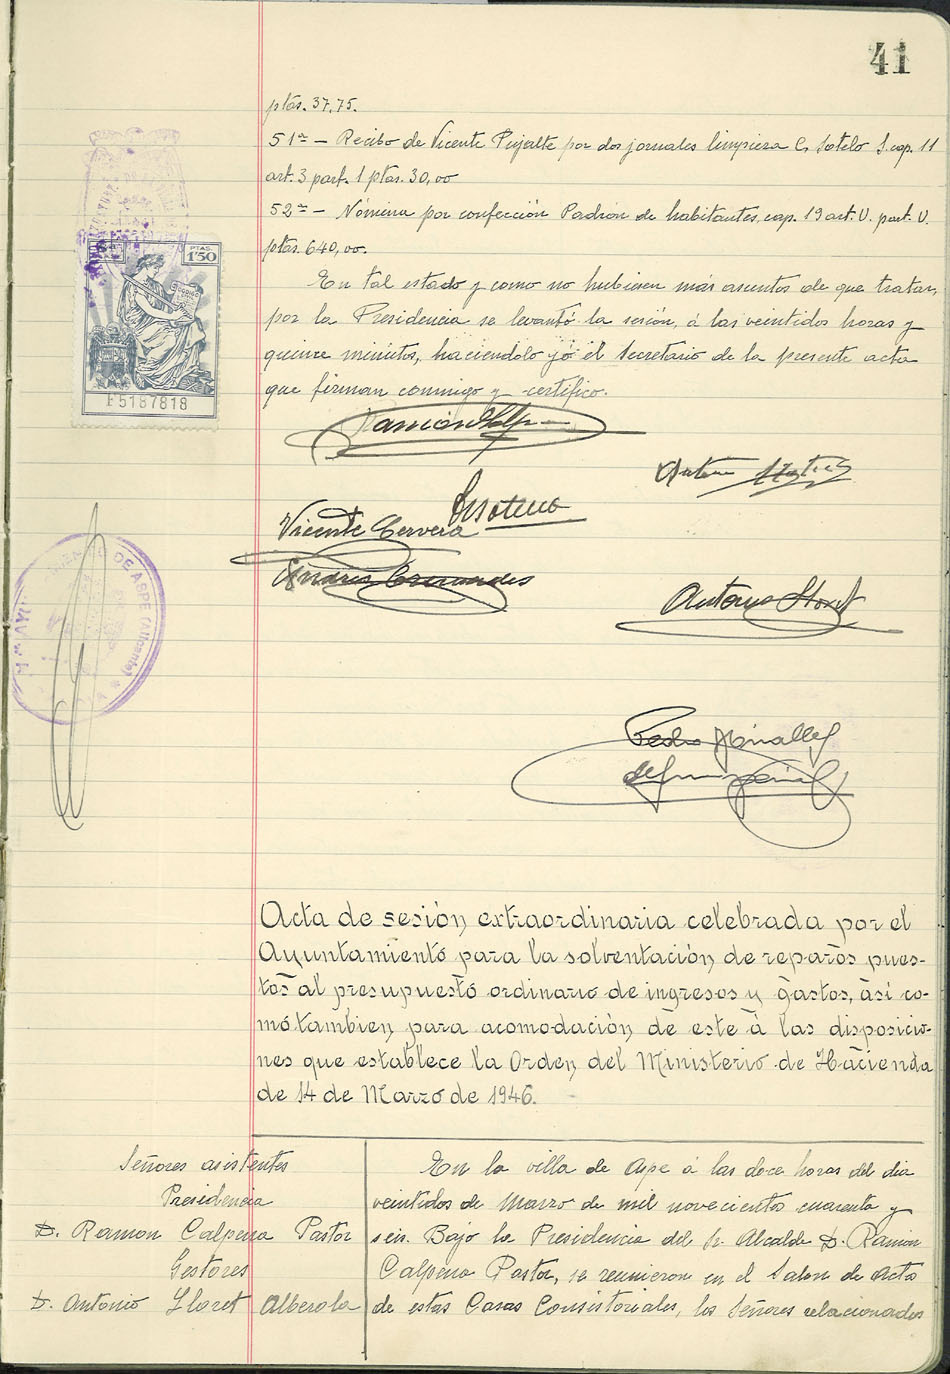 41
ptas. 37,75.
51ª — Recibo de Vicente Pujalte por dos jornales limpieza C. Sotelo S. cap. 11
art. 3 part. 1 ptas. 30,00
52ª — Nómina por confección Padrón de habitantes, cap. 19 art. U. part. U.
ptas. 640,00.
En tal estado y como no hubiesen más asuntos de que tratar,
por la Presidencia se levantó la sesión, á las veintidos horas y
quince minutos, haciendolo yó el Secretario de la presente acta
que firman conmigo y certifico.
PTAS.
1'50
F5187818
Vicente Cervera
Antonio Lloret
Pedro
DE ASPE (Alicante)
Acta de sesión extraordinaria celebrada por el
Ayuntamiento para la solventación de reparos pues-
tos al presupuesto ordinario de ingresos y gastos, asi co-
mo tambien para acomodación de este á las disposicio-
nes que establece la Orden del Ministerio de Hacienda
de 14 de Marzo de 1946.
Señores asistentes
Presidencia
D. Ramon Calpena Pastor
Gestores
D. Antonio Lloret Alberola
En la villa de Aspe á las doce horas del dia
veintidos de Marzo de mil novecientos cuarenta y
seis. Bajo la Presidencia del Sr. Alcalde D. Ramon
Calpena Pastor, se reunieron en el Salon de Acto
de estas Casas Consistoriales, los Señores relacionados